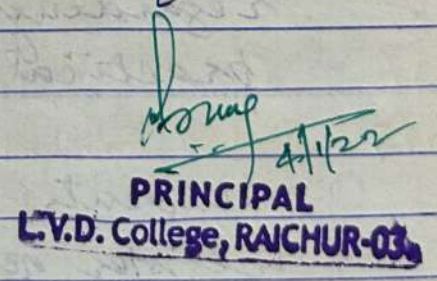 4/1/22
PRINCIPAL
L.V.D. College, RAICHUR-03.